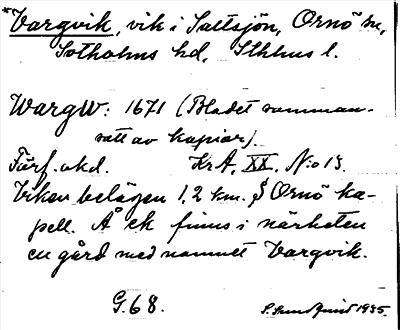 *Vargvik, vik i Saltsjön, Ornö sn,
Sotholms hd, Sthlms l.
WargW: 1671 (Bladet samman-
satt av kapior).
Förf. okd. KrA, XX, N:o 13.
Viken belägen 1,2 km. S Ornö ka-
pell. Å ek finns i närheten
en gård med namnet Vargvik.
G.68. S. Sundquist 1935.